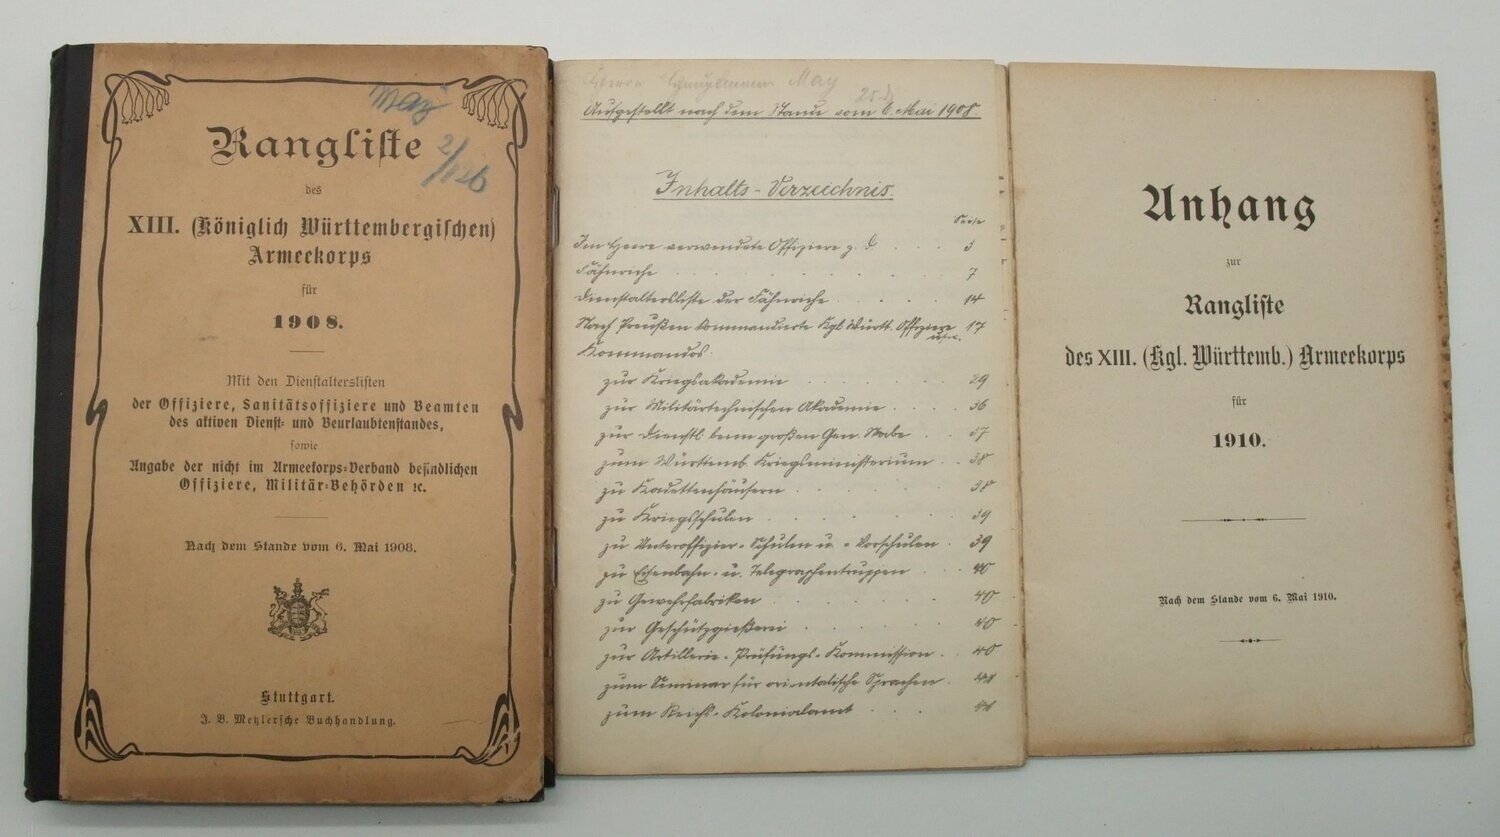 May
2/126
Rangliste
des
XIII. (Königlich Württembergischen)
Armeekorps
für
1908.
Mit den Dienstalterslisten
der Offiziere, Sanitätsoffiziere und Beamten
des aktiven Dienst- und Beurlaubtenstandes,
sowie
Angabe der nicht im Armeekorps-Verband befindlichen
Offiziere, Militär-Behörden ꝛc.
Nach dem Stande vom 6. Mai 1908.
Stuttgart.
J. B. Metzlersche Buchhandlung.
Herrn Hauptmann May
Aufgestellt nach dem Stande vom 6. Mai 1908.
Inhalts-Verzeichnis.
Seite
Im Heere verwendete Offiziere z. D. . . . 3
Fähnriche . . . . . . . . 7
Dienstaltersliste der Fähnriche . . . . . 14
Nach Preußen kommandierte Kgl. Württ. Offiziere usw. 17
Kommandos:
zur Kriegsakademie . . . . . . 29
zur Militärtechnischen Akademie . . . . 36
zur Dienstl. beim großen Gen. Stabe . . 37
zum Württemb. Kriegsministerium . . 38
zu Kadettenhäusern . . . . . . 38
zu Kriegsschulen . . . . . . . 39
zu Unteroffizier-Schulen u. -Vorschulen . 39
zu Eisenbahn- u. Telegraphentruppen . . . 40
zu Gewehrfabriken . . . . . . 40
zur Geschützgießerei . . . . . . 40
zur Artillerie-Prüfungs-Kommission . . 40
zum Seminar für orientalische Sprachen . 41
zum Reichs-Kolonialamt . . . . 41
Anhang
zur
Rangliste
des XIII. (Kgl. Württemb.) Armeekorps
für
1910.
Nach dem Stande vom 6. Mai 1910.